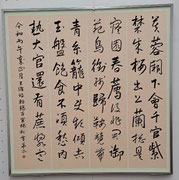 芙蓉闕下會千官紫
禁朱櫻出上蘭是
寢園春薦後非關御
苑鳥銜殘歸鞍競帶
青絲籠中使頻傾赤
玉盤飽食不須愁内
熱大官還有蔗漿寒
令和丙午